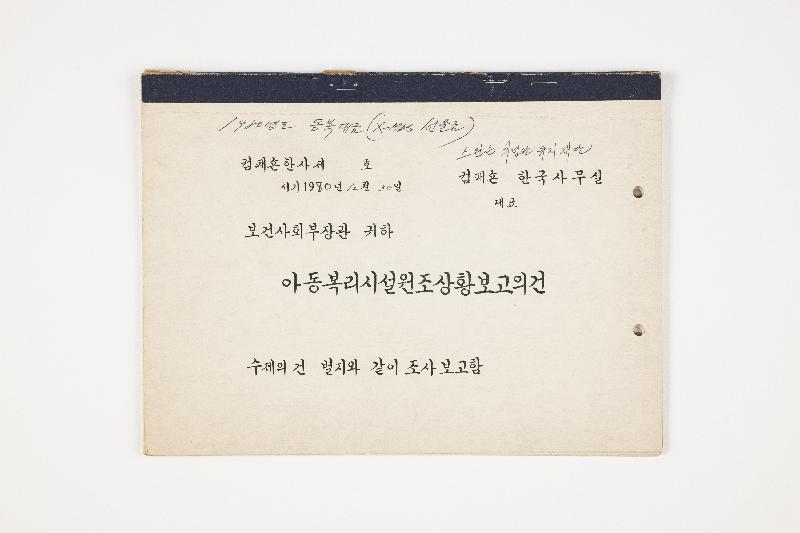 1980년도 동복대금 (X-mas 선물금)
컴패숀한사세 호
서기 1980년 12월 30일
컴패숀 한국사무실
대표
보건사회부장관 귀하
아동복리시설원조상황보고의건
수제의 건 별지와 같이 조사보고함